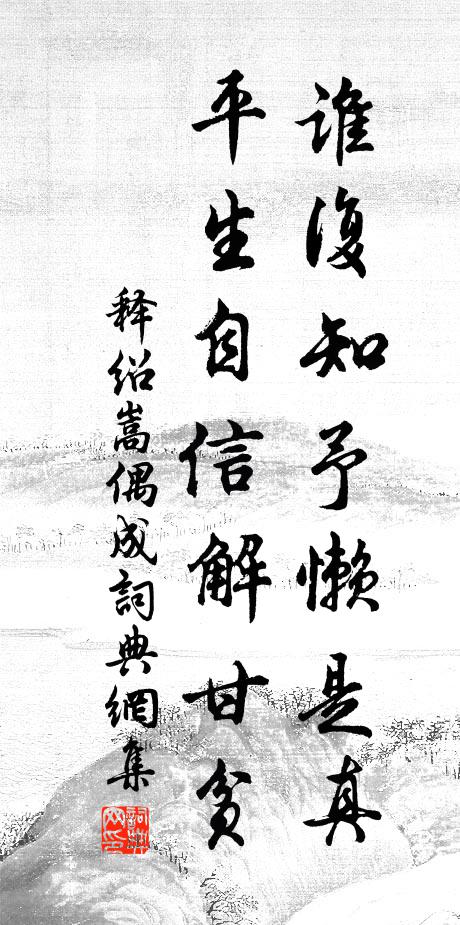 誰復知予懶是真
平生自信解甘貧
释绍嵩偶成詞典網集
詞典网印